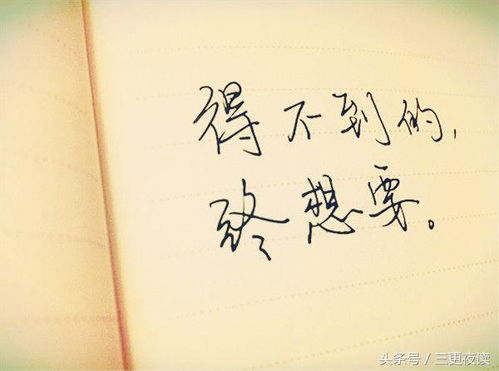 得不到的，
终想要。
头条号 / 三更夜读